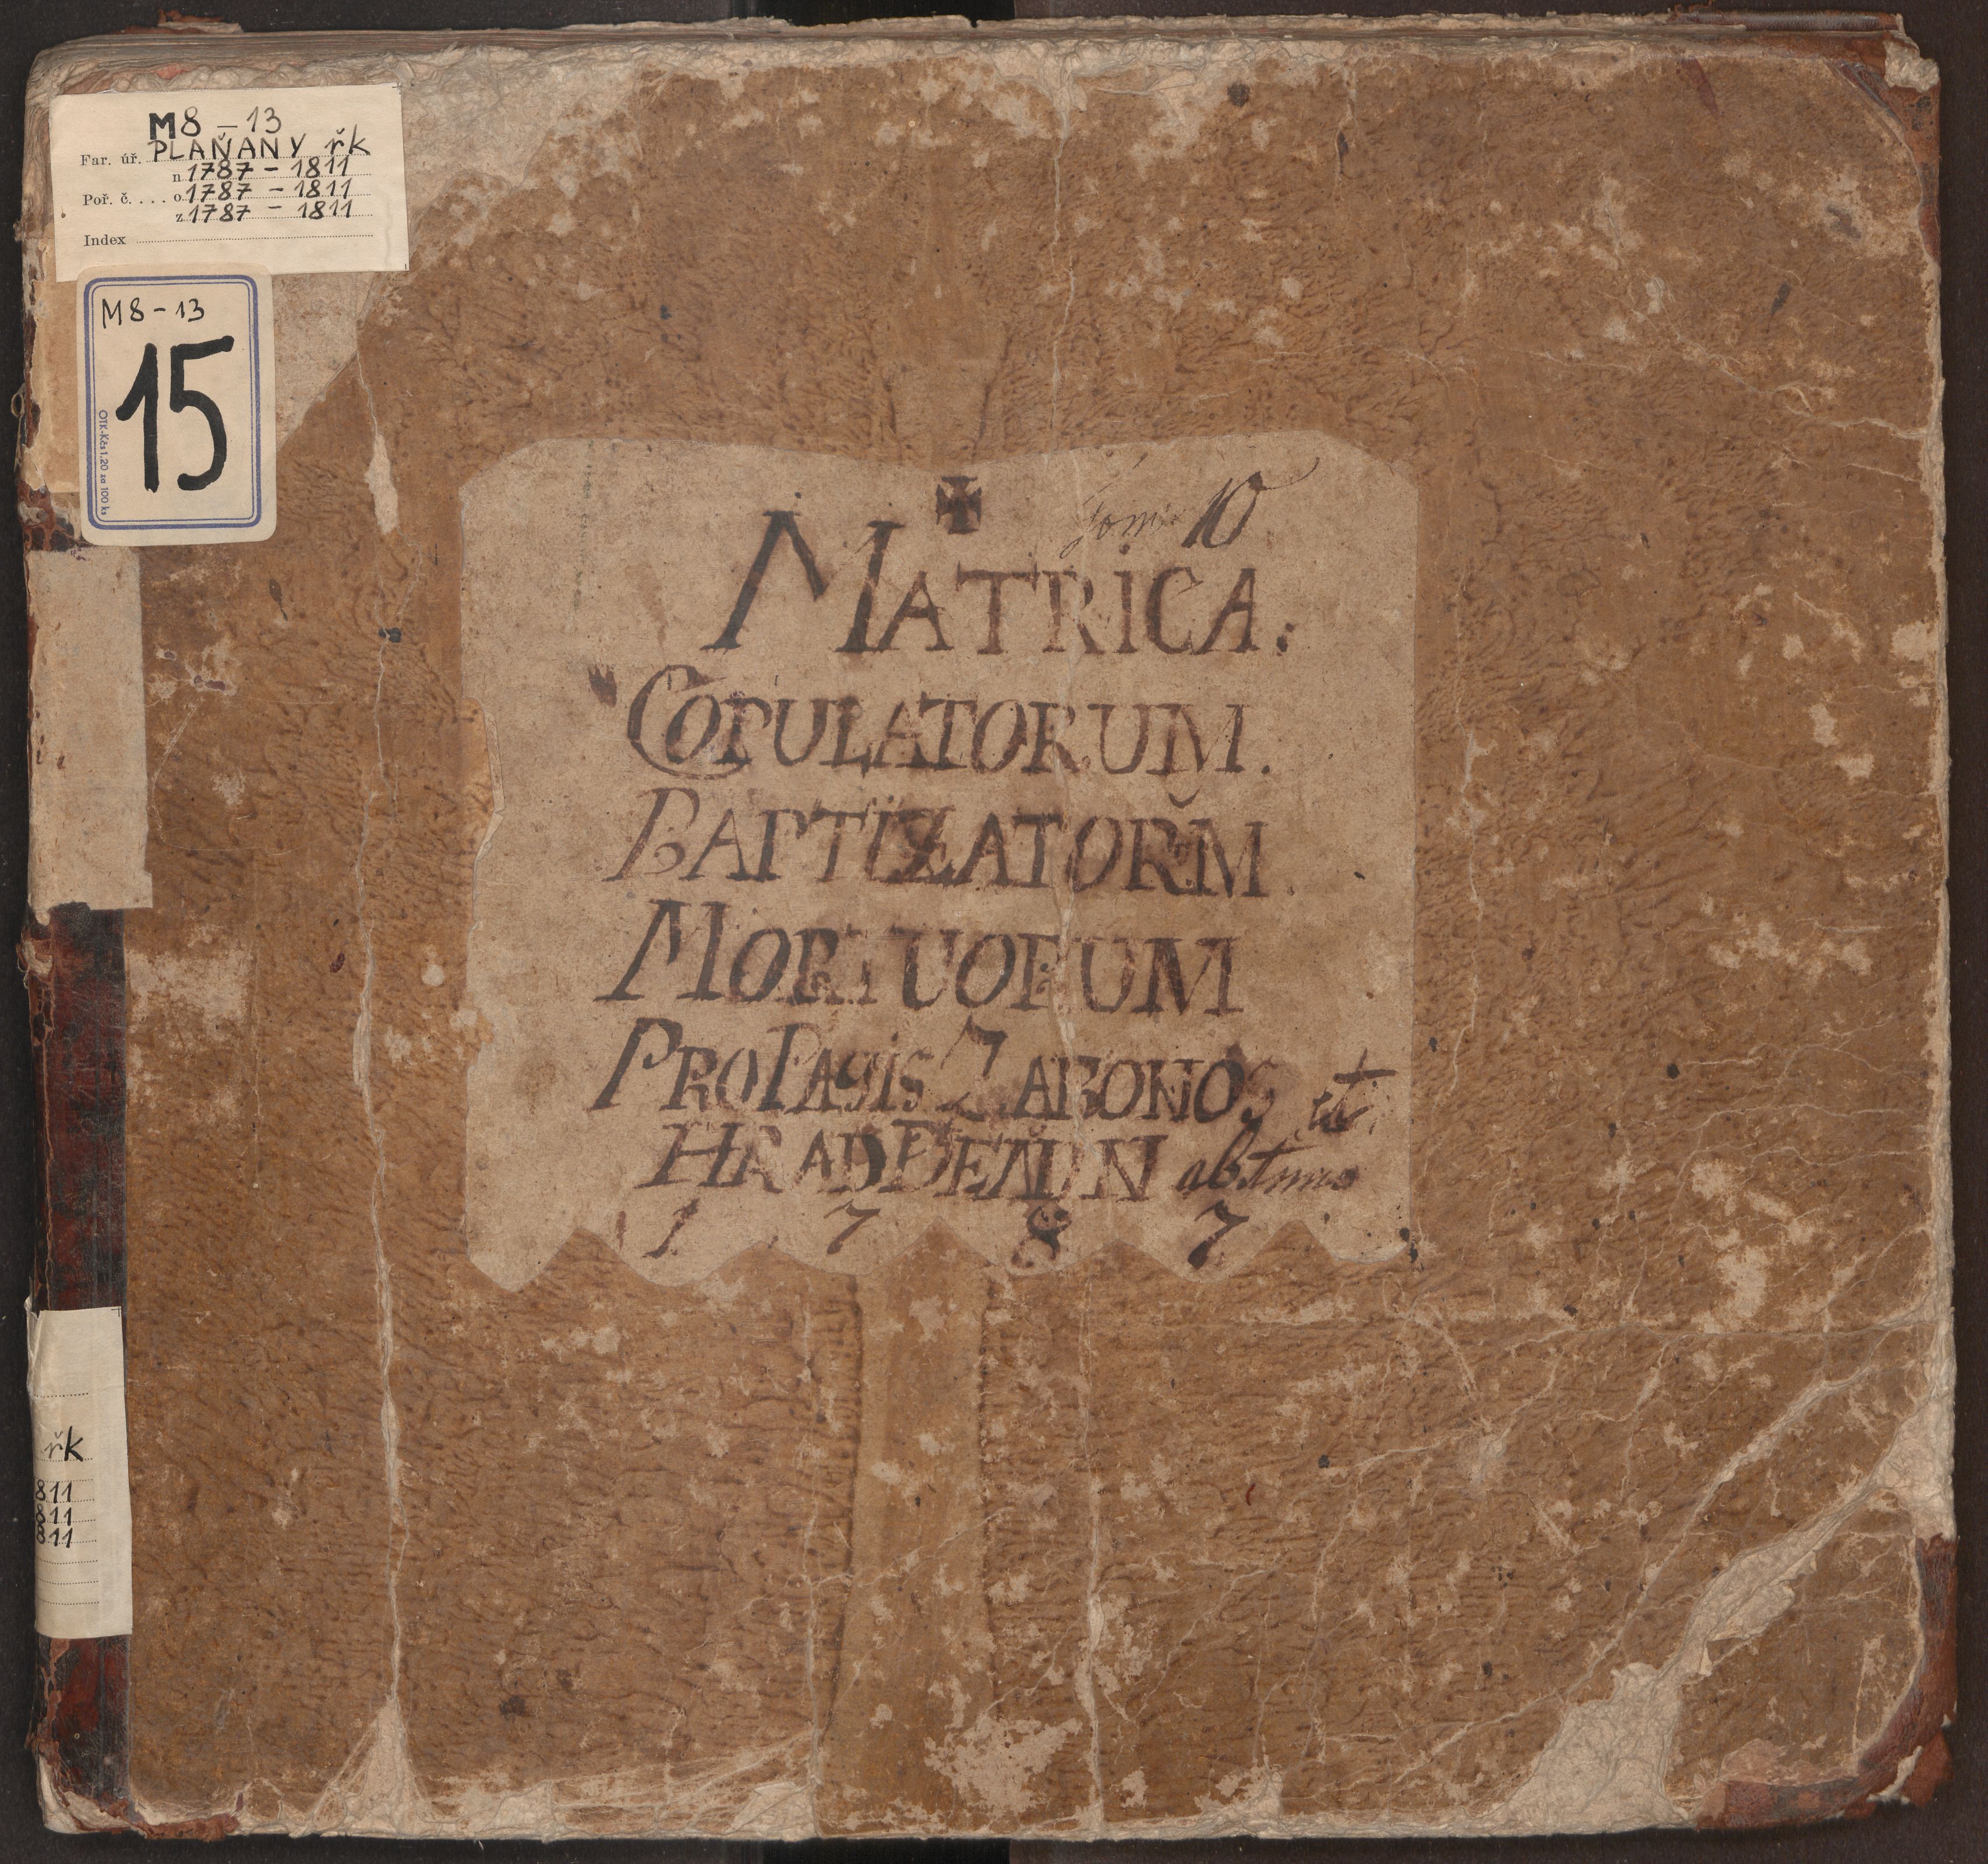 M8-13
Far. úř. PLAŇANY řk
n 1787-1811
Poř. č. .... o 1787-1811
z 1787-1811
Index
M8-13
15
OTK-Kčs 1,20 za 100 ks
Tom 10
MATRICA:
COPULATORUM.
BAPTIZATORM.
MORTUORUM
PRO PAGIS ZABONOS et
ab Anno
1787
řk
811
811
811